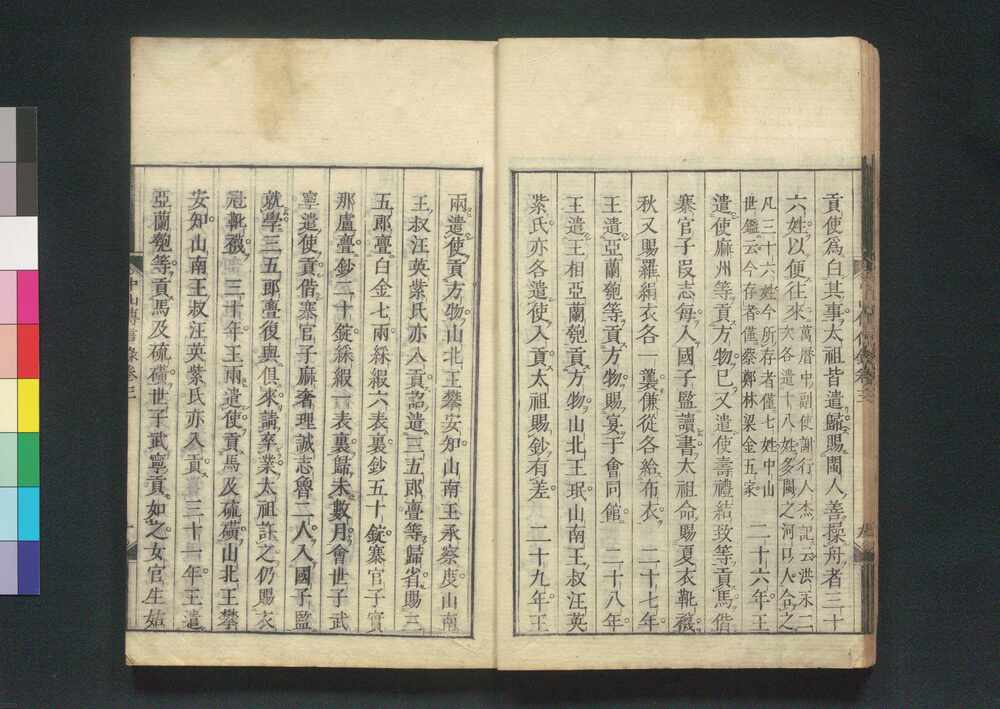 貢使爲白其事太祖皆遣歸賜閩人善操舟者三十
六姓以便往來萬曆中副使謝行人杰記云洪永二
次各遣十八姓多閩之河口人合之
凡三十六姓今所存者僅七姓中山
世鑑云今存者僅蔡鄭林梁金五家
二十六年王
遣使麻州等貢方物已又遣使壽禮結致等貢馬偕
寨官子段志每入國子監讀書太祖命賜夏衣靴襪
秋又賜羅絹衣各一襲傔從各給布衣 二十七年
王遣亞蘭匏等貢方物賜宴于會同館 二十八年
王遣王相亞蘭匏貢方物山北王珉山南王叔汪英
紫氏亦各遣使入貢太祖賜鈔有差 二十九年王
兩遣使貢方物山北王攀安知山南王承察度山南
王叔汪英紫氏亦入貢詔遣三五郎亹等歸省賜三
五郎亹白金七兩綵緞六表裏鈔五十錠寨官子實
那盧亹鈔二十錠綵緞一表裏歸未數月會世子武
寧遣使貢偕寨官子麻奢理誠志魯二人入國子監
就學三五郎亹復與俱來請卒業太祖許之仍賜衣
冠靴襪 三十年王兩遣使貢馬及硫磺山北王攀
安知山南王叔汪英紫氏亦入貢 三十一年王遣
亞蘭匏等貢馬及硫磺世子武寧貢如之女官生姑
中山傳信錄卷三